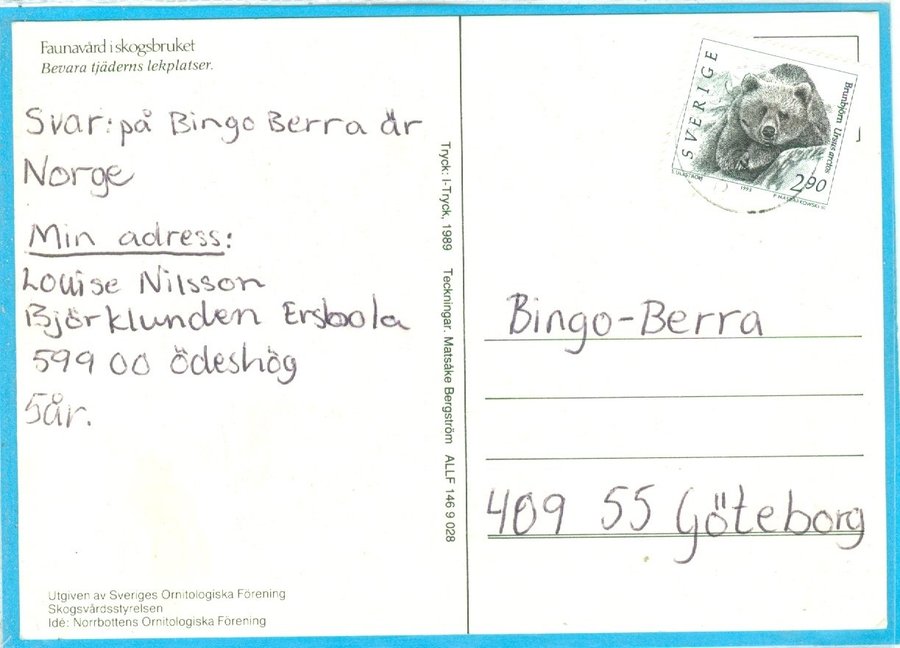 Faunavård i skogsbruket
Bevara tjäderns lekplatser.
Svar: på Bingo Berra är
Norge
Min adress:
Louise Nilsson
Björklunden Ersboola
599 00 Ödeshög
5år.
Utgiven av Sveriges Ornitologiska Förening
Skogsvårdsstyrelsen
Idé: Norrbottens Ornitologiska Förening
Tryck: I-Tryck, 1989 Teckningar. Matsåke Bergström ALLF 146 9 028
SVERIGE
Brunbjörn Ursus arctos
2.90
1993
Bingo-Berra
409 55 Göteborg